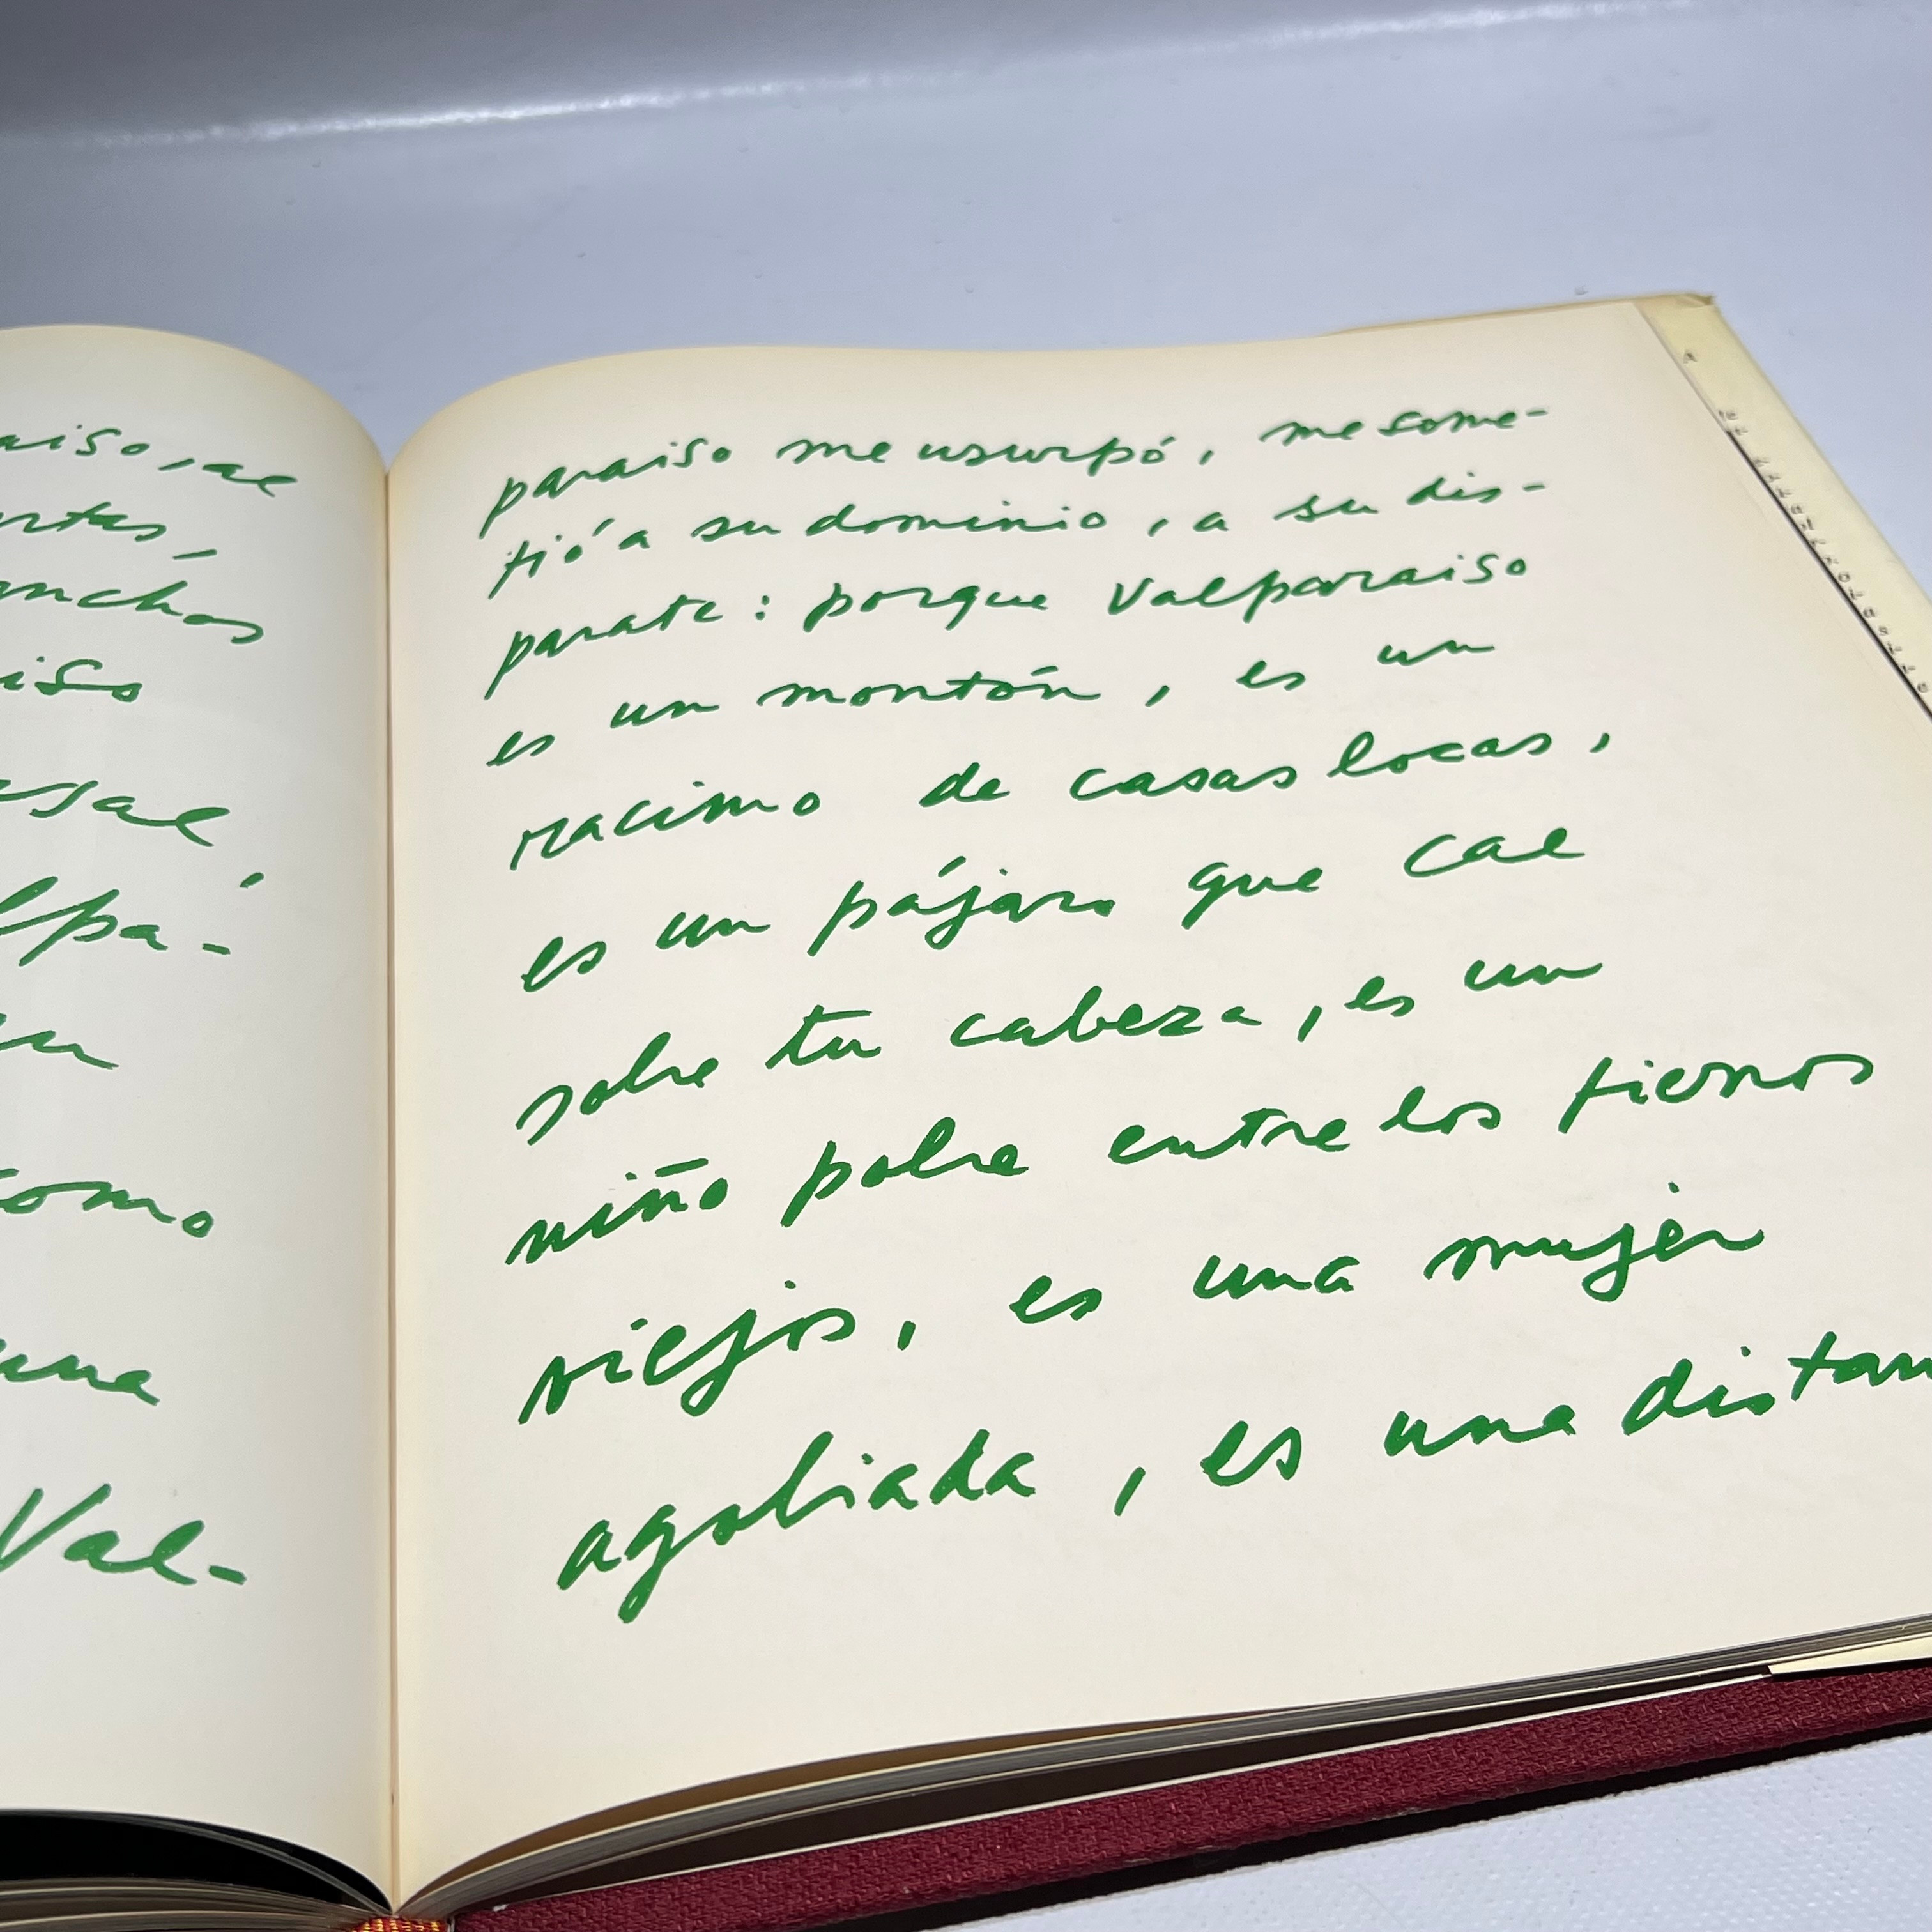 aiso, al
rtas,
anchos
iso
rsal,
lpa-
en
como
una
Val-
paraiso me usurpó, me some-
tió a su dominio, a su dis-
parate: porque Valparaiso
es un montón, es un
racimo de casas locas,
es un pájaro que cae
sobre tu cabeza, es un
niño pobre entre los fierros
viejos, es una mujer
agobiada, es una distan